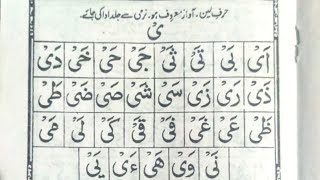 حرف لین۔ آواز معروف ہو۔ نرمی سے جلد ادا کی جائے۔
یْ
اَیْ بَیْ تَیْ ثَیْ جَیْ حَیْ خَیْ دَیْ
ذَیْ رَیْ زَیْ سَیْ شَیْ صَیْ ضَیْ طَیْ
ظَیْ عَیْ غَیْ فَیْ قَیْ کَیْ لَیْ مَیْ
نَیْ وَیْ ھَیْ ءَیْ یَیْ